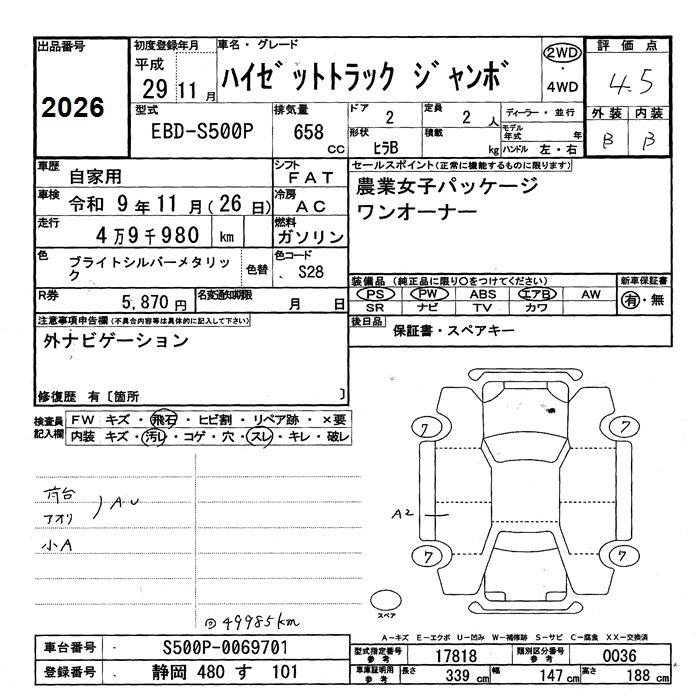 出品番号
2026
初度登録年月
平成
29 11月
車名・グレード
ハイゼットトラック ジャンボ
2WD
・
4WD
評価点
4.5
型式
EBD-S500P
排気量
658 cc
ドア 2
定員 2 人
ディーラー・並行
形状 ヒラB
積載 kg
モデル年式 年
ハンドル 左・右
外装 内装
B B
車歴 自家用
シフト FAT
車検 令和 9年 11月(26日)
冷房 AC
走行 4万9千980 km
燃料 ガソリン
色 ブライトシルバーメタリック
色替
色コード S28
R券 5,870円
名変通知期限 月 日
セールスポイント(正常に機能するものに限ります)
農業女子パッケージ
ワンオーナー
装備品(純正品に限り○をつけてください)
新車保証書
PS PW ABS エアB AW
有・無
SR ナビ TV カワ
後日品 保証書・スペアキー
注意事項申告欄(不具合内容等は具体的に記入して下さい)
外ナビゲーション
修復歴 有〔箇所 〕
検査員記入欄
FW キズ・飛石・ヒビ割・リペア跡・×要
内装 キズ・汚レ・コゲ・穴・スレ・キレ・破レ
荷台
アオリ ) AU
小A
@49985km
7 7
A2
7 7
スペア
A-キズ E-エクボ U-凹み W-補修跡 S-サビ C-腐食 XX-交換済
車台番号 S500P-0069701
登録番号 静岡 480 す 101
型式指定番号参考 17818
類別区分番号参考 0036
車庫証明用参考 長さ 339 cm 幅 147 cm 高さ 188 cm